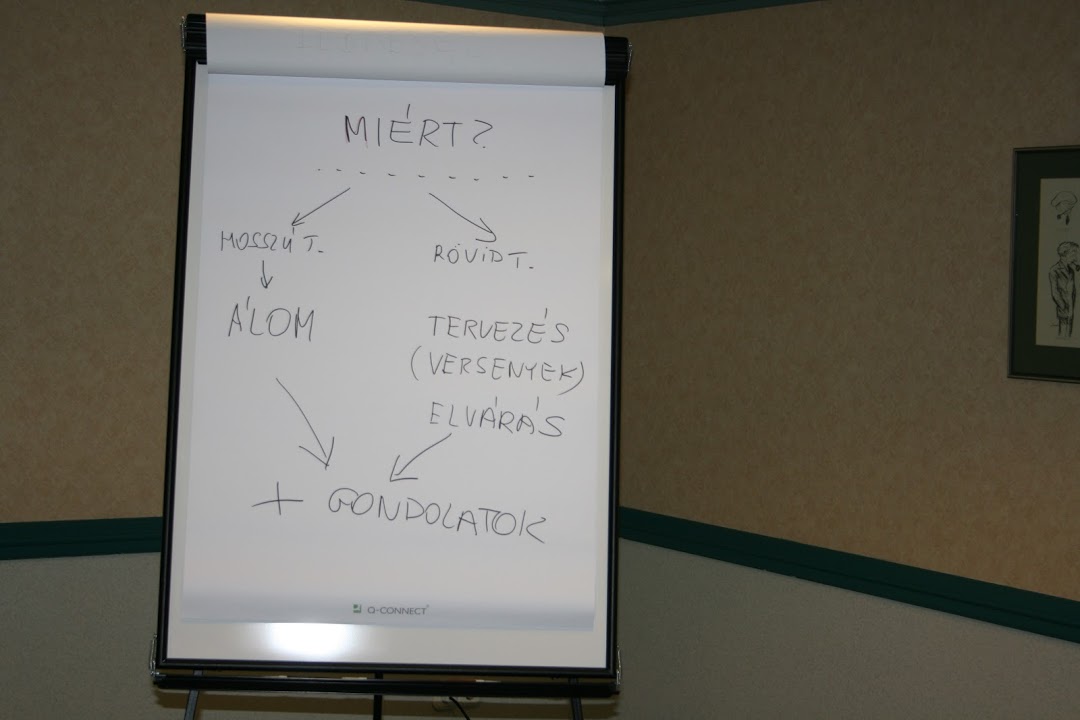 MIÉRT?
HOSSZÚ T.
RÖVID T.
ÁLOM
TERVEZÉS
(VERSENYEK)
ELVÁRÁS
+ GONDOLATOK
Q-CONNECT